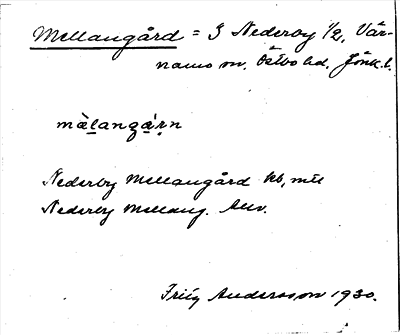 Mellangård = 3 Nederby 1/2, Vär-
namo sn, Östbo hd, Jönk. l.
mä̀langạ́ṛn
Nederby Mellangård kb, mtl
Nederby Mellang.
Fritz Andersson 1930.